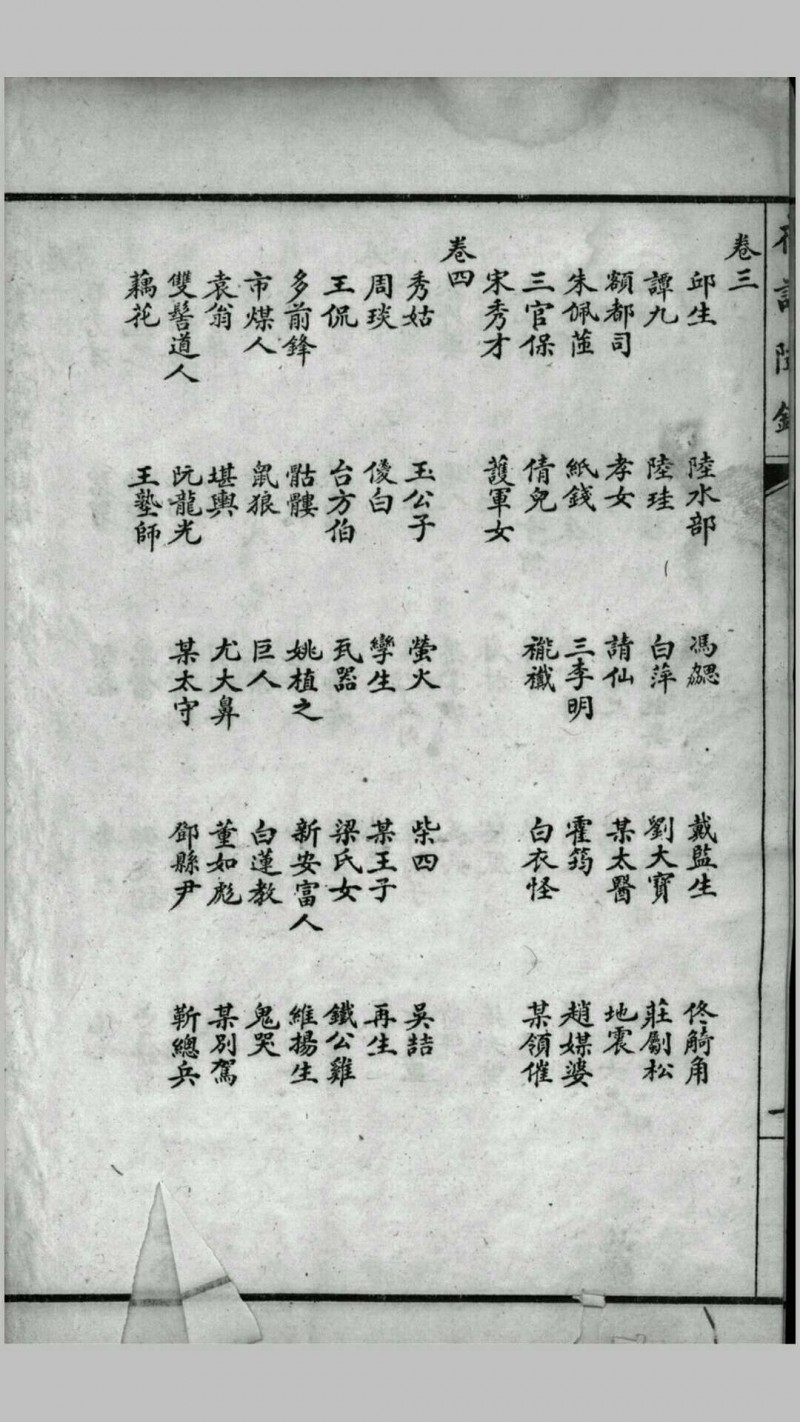 卷三
邱生 陸水部 馮勰 戴監生 佟觭角
譚九 陸珪 白萍 劉大賓 莊斸松
額都司 孝女 請仙 某太醫 地震
朱佩茝 紙錢 三李明 霍筠 趙媒婆
三官保 倩兒 白衣怪 某領催
宋秀才 護軍女
卷四
秀姑 玉公子 螢火 柴四 吳喆
周琰 儍白 孿生 某王子 再生
王侃 台方伯 瓦器 梁氏女 鐵公雞
多前鋒 骷髏 姚植之 新安富人 維揚生
市煤人 鼠狼 巨人 白蓮教 鬼哭
袁翁 堪輿 尤大鼻 董如彪 某別駕
雙髻道人 阮龍光 某太守 鄧縣尹 靳總兵
藕花 王塾師